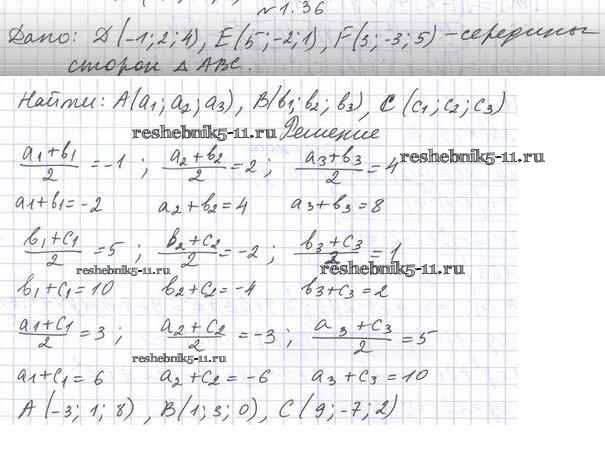 №1.36
Дано: D(-1; 2; 4), E(5; -2; 1), F(3; -3; 5) - середины
сторон Δ ABC.
Найти: A(a₁; a₂; a₃), B(b₁; b₂; b₃), C(c₁; c₂; c₃)
reshebnik5-11.ru
Решение
(a₁+b₁)/2 = -1 ; (a₂+b₂)/2 = 2 ; (a₃+b₃)/2 = 4
reshebnik5-11.ru
a₁+b₁ = -2 a₂+b₂ = 4 a₃+b₃ = 8
(b₁+c₁)/2 = 5 ; (b₂+c₂)/2 = -2 ; (b₃+c₃)/2 = 1
reshebnik5-11.ru reshebnik5-11.ru
b₁+c₁ = 10 b₂+c₂ = -4 b₃+c₃ = 2
(a₁+c₁)/2 = 3 ; (a₂+c₂)/2 = -3 ; (a₃+c₃)/2 = 5
reshebnik5-11.ru
a₁+c₁ = 6 a₂+c₂ = -6 a₃+c₃ = 10
A(-3; 1; 8), B(1; 3; 0), C(9; -7; 2)